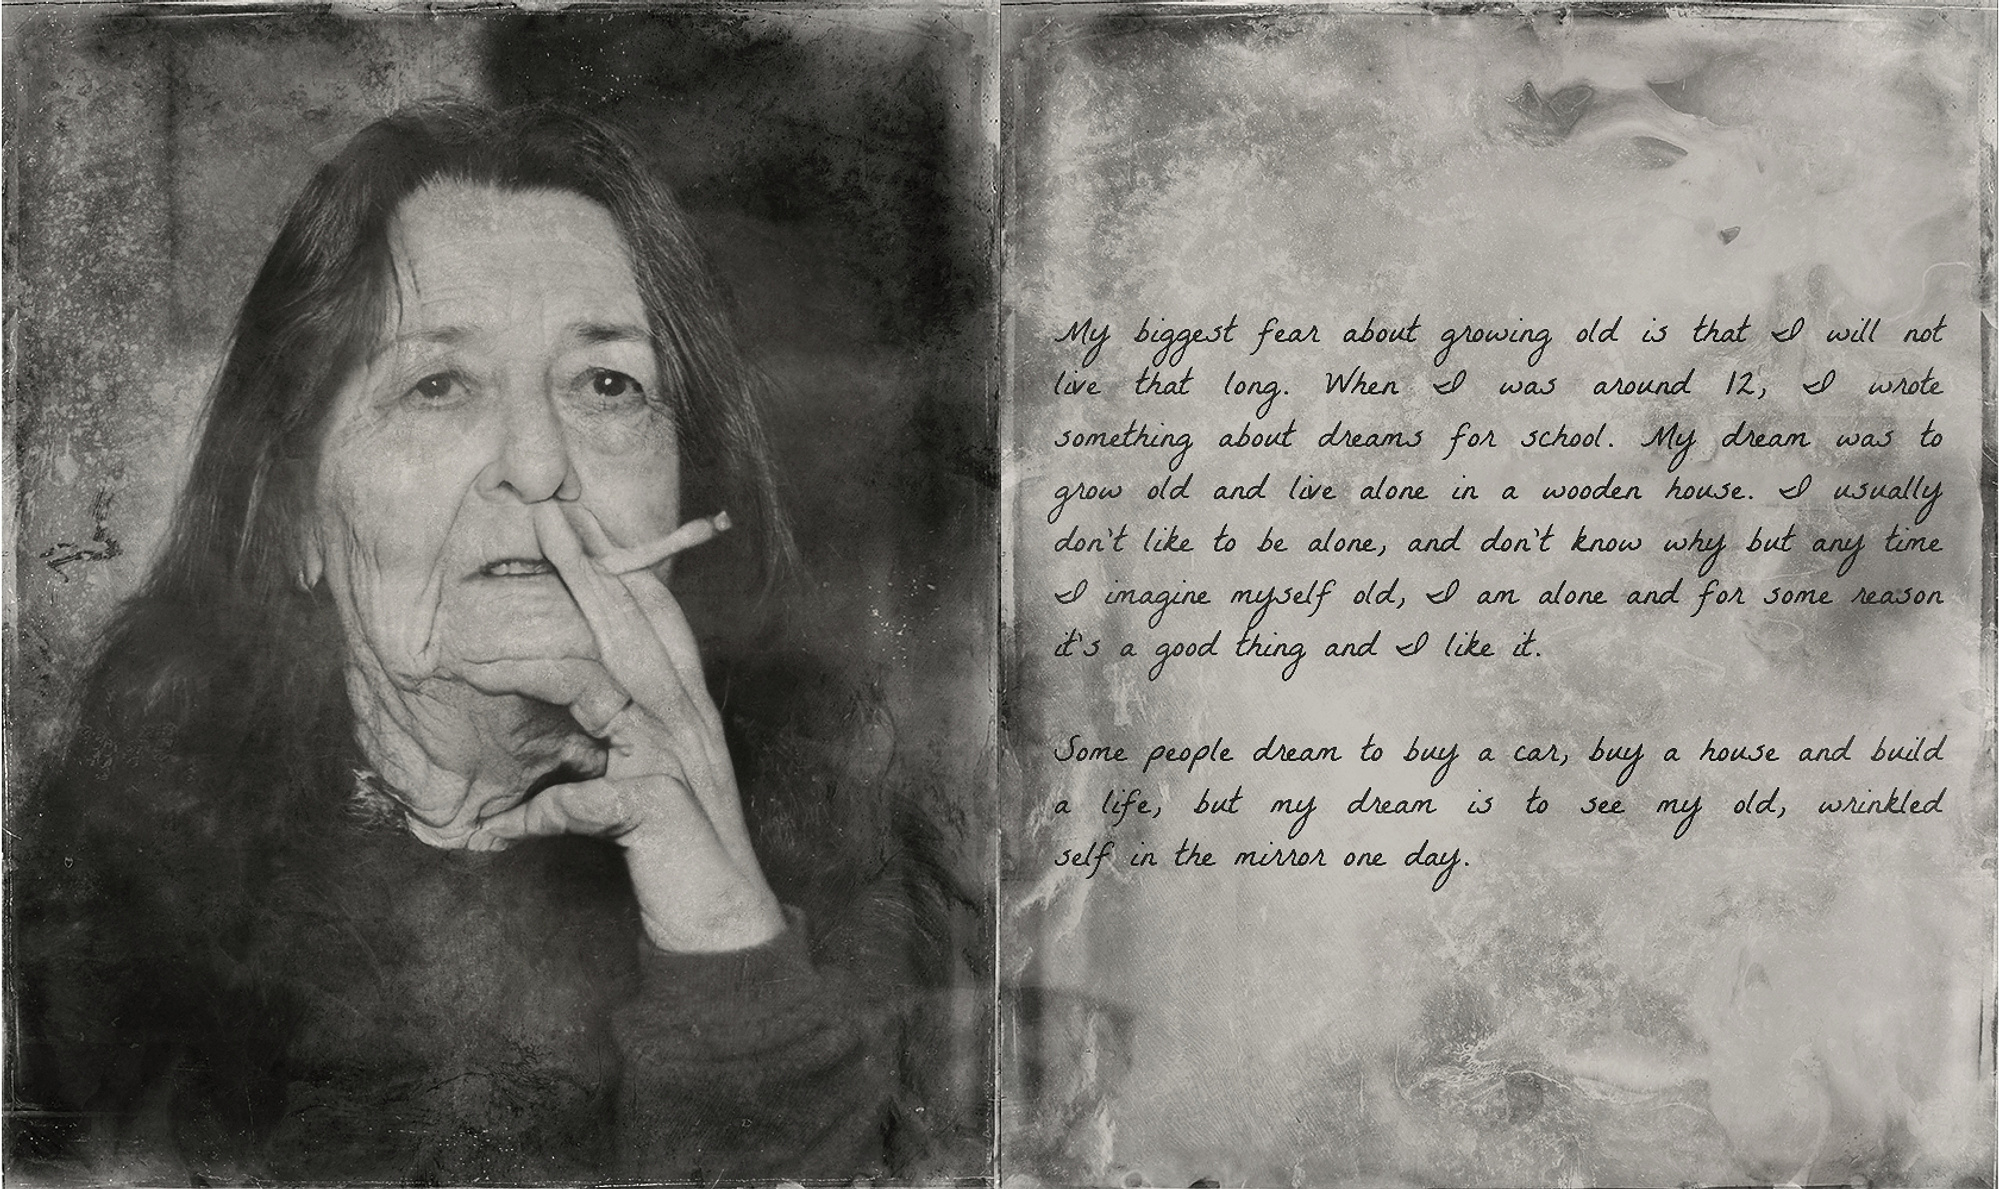 My biggest fear about growing old is that I will not
live that long. When I was around 12, I wrote
something about dreams for school. My dream was to
grow old and live alone in a wooden house. I usually
don't like to be alone, and don't know why but any time
I imagine myself old, I am alone and for some reason
it's a good thing and I like it.
Some people dream to buy a car, buy a house and build
a life, but my dream is to see my old, wrinkled
self in the mirror one day.